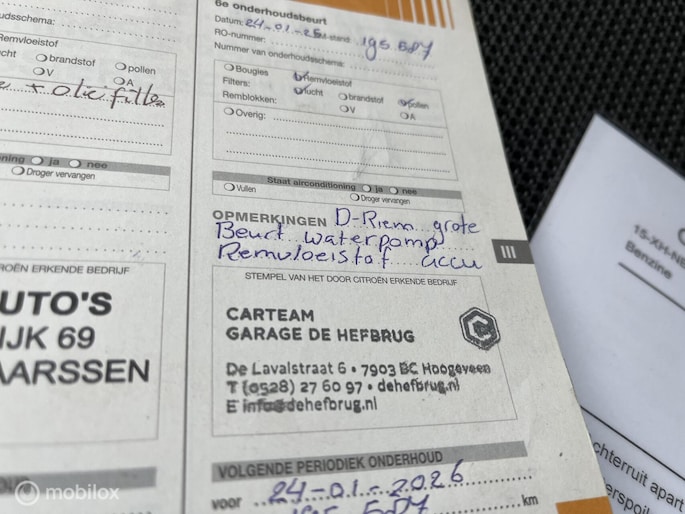 udsschema:
Remvloeistof
cht brandstof pollen
V A
+ oliefilter
ning ja nee
Droger vervangen
CITROËN ERKENDE BEDRIJF
UTO'S
IJK 69
AARSSEN
6e onderhoudsbeurt
Datum: 24-01-25
RO-nummer:
Nummer van onderhoudsschema:
Bougies Remvloeistof
Filters: lucht brandstof pollen
Remblokken: V A
Overig:
Staat airconditioning ja nee
Vullen Droger vervangen
OPMERKINGEN D-Riem grote
Beurt waterpomp
Remvloeistof accu
III
STEMPEL VAN HET DOOR CITROËN ERKENDE BEDRIJF
CARTEAM
GARAGE DE HEFBRUG
De Lavalstraat 6 • 7903 BC Hoogeveen
T (0528) 27 60 97 • dehefbrug.nl
E info@dehefbrug.nl
VOLGENDE PERIODIEK ONDERHOUD
voor 24-01-2026
km
15-XH-N
Benzine
chterruit apart
erspoil
mobilox